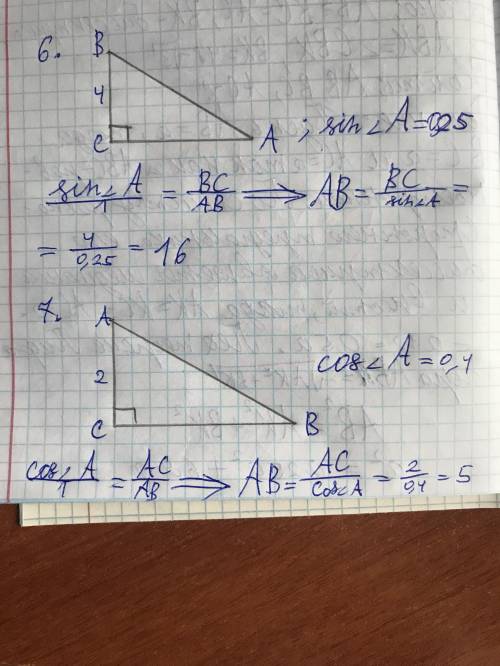 6.
B
4
C
A
; sin∠A=0,25
sin∠A/1 = BC/AB ⟹ AB = BC/sin∠A =
= 4/0,25 = 16
7.
A
cos∠A = 0,4
2
C
B
cos∠A/1 = AC/AB ⟹ AB = AC/cos∠A = 2/0,4 = 5